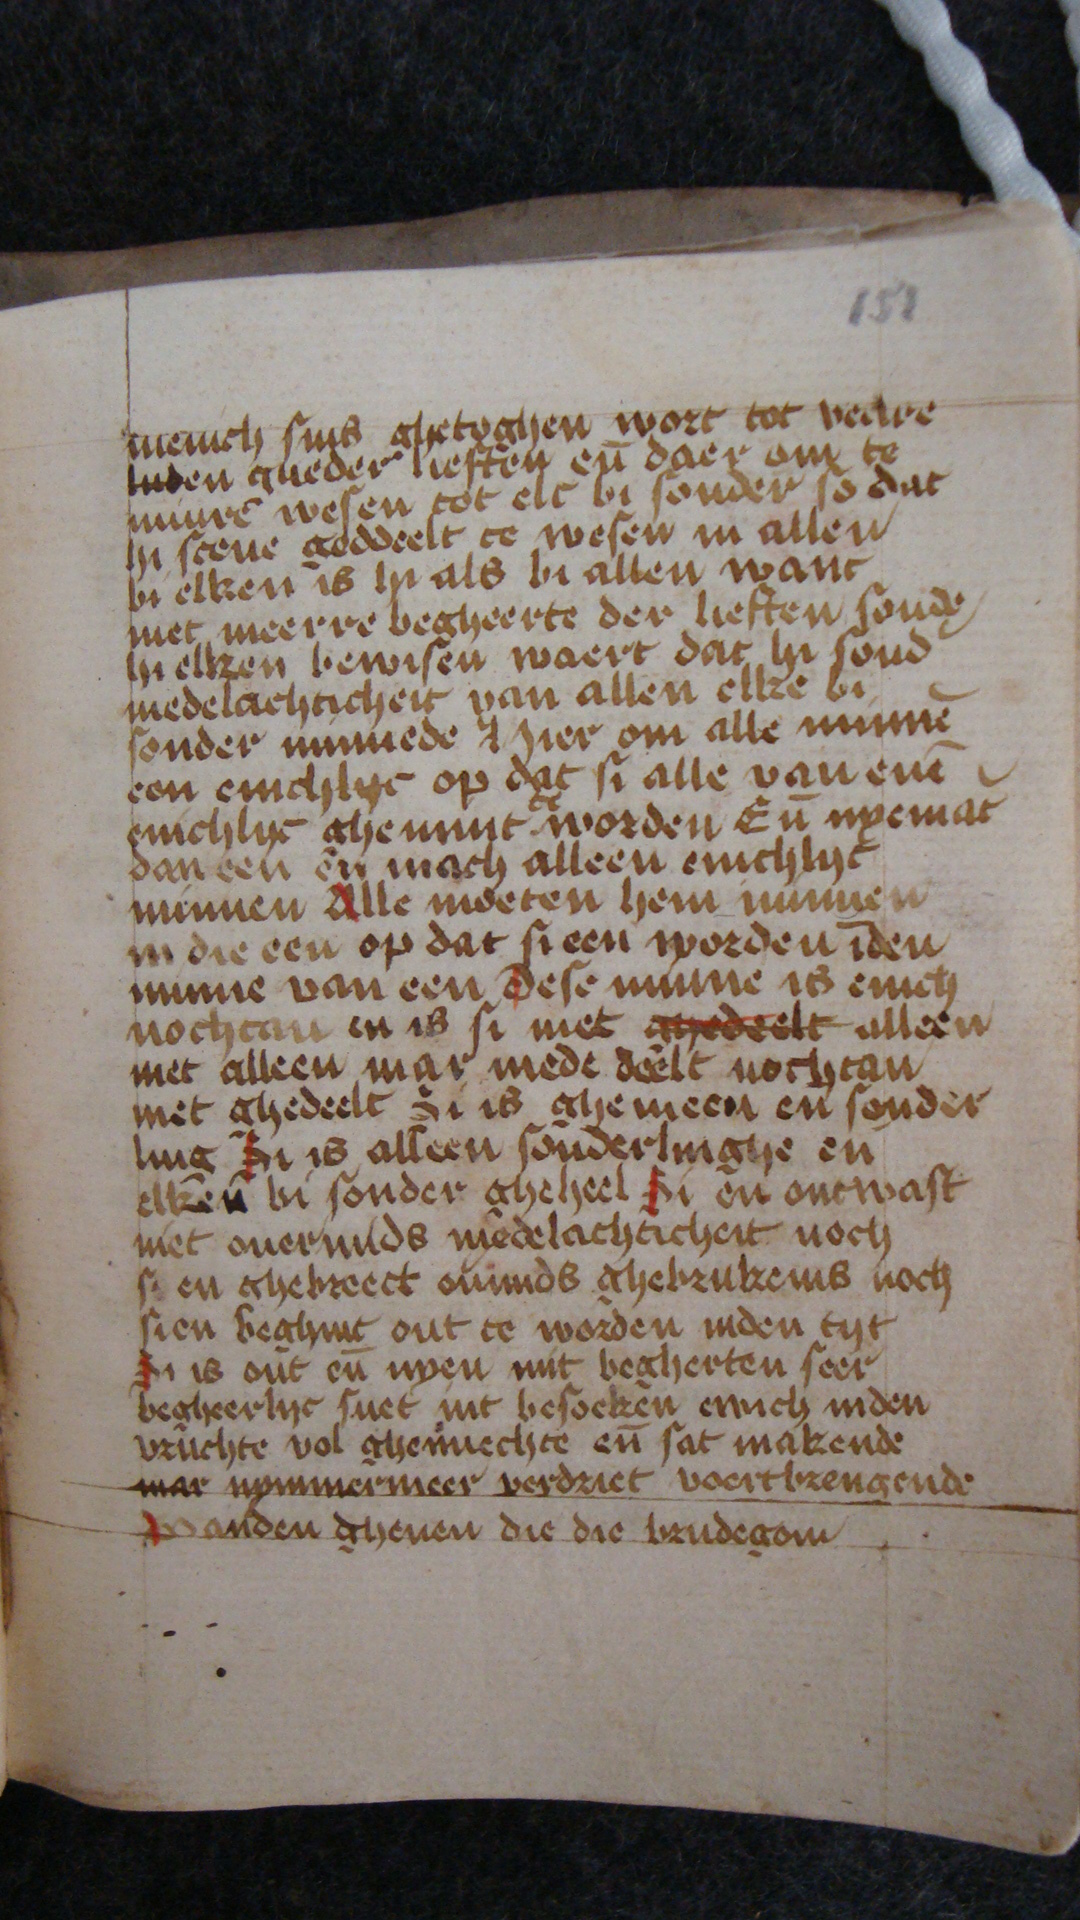 151
menich sins ghetoghen wort tot veelre
luden gueder lieften en̄ daer om te
minre̅ wesen tot elc bi sonder so dat
hi scene geddeelt te wesen in allen
bi elken is hi als bi allen want
met meerre begheerte der lieften soude
hi elken bewisen waert dat hi sond̅
medelachticheit van allen elke bi
sonder minnede Hier om alle minne̅
een enichlyc op dat si alle van ene̅
enichlyc ghemint te worden En̄ nyema̅t
dan een en̄ mach alleen enichlyc
minnen Alle moeten hem minnen
in die een op dat si een worden i̅den
minne van een Dese minne is enich
nochtan en is si niet ghedeelt alleen
niet alleen mar mede deelt nochtan
niet ghedeelt Si is ghemeen en̄ sonder
ling Si is alleen sonderlinghe en̄
elken bi sonder gheheel Si en̄ ontwast
niet ouermids medelachticheit noch
si en ghebreect ouimds ghebrukenis noch
sien beghint out te worden inden tyt
Si is out en̄ nyen mit begherten seer
begheerlyc suet int besoeken ewich inden
vruchte vol ghenuechte en̄ sat makende
mar nymmermeer verdriet voertbrengende
Wanden ghenen die die brudegom